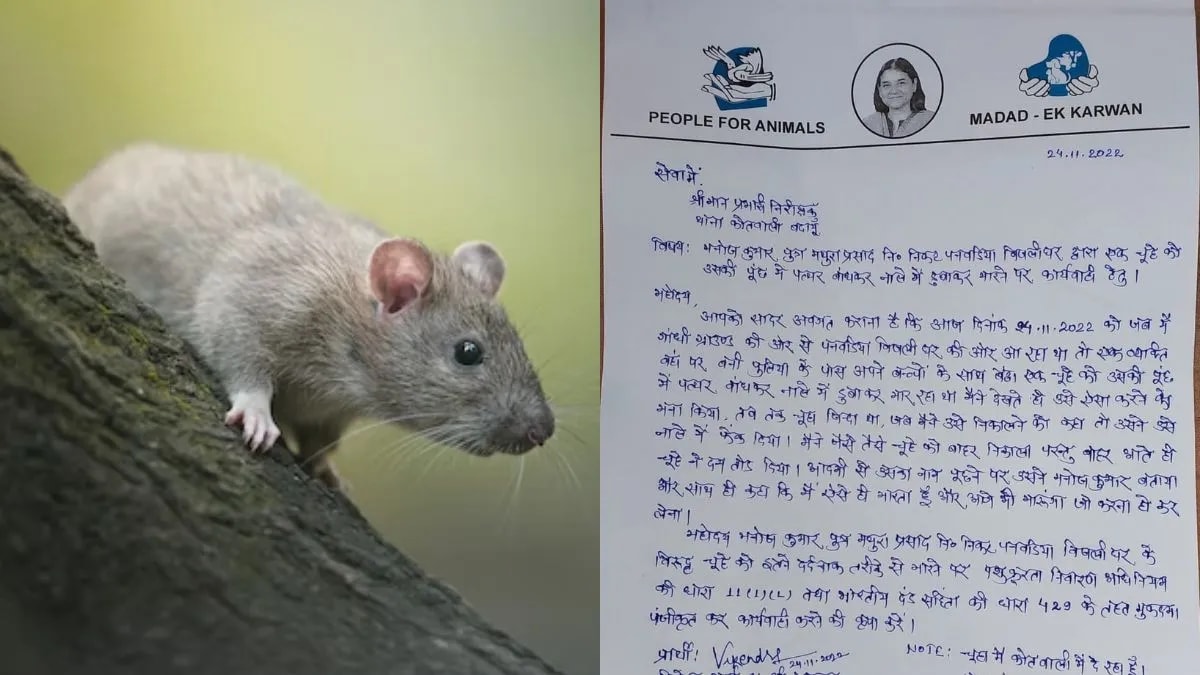 PEOPLE FOR ANIMALS
MADAD - EK KARWAN
24.11.2022
सेवा में,
श्रीमान प्रभारी निरीक्षक
थाना कोतवाली बदायूं
विषय: मनोज कुमार पुत्र मथुरा प्रसाद नि० निकट पनवडिया बिजलीघर द्वारा एक चूहे को
उसकी पूंछ में पत्थर बांधकर नाले में डुबाकर मारने पर कार्यवाही हेतु।
महोदय,
आपको सादर अवगत कराना है कि आज दिनांक 24.11.2022 को जब मैं
गांधी ग्राउण्ड की ओर से पनवडिया बिजलीघर की ओर आ रहा था तो एक व्यक्ति
वहां पर बनी पुलिया के पास अपने बच्चों के साथ बैठा एक चूहे को उसकी पूंछ
में पत्थर बांधकर नाले में डुबाकर मार रहा था मैंने देखते ही उसे ऐसा करने को
मना किया, तब तक चूहा जिन्दा था, जब मैंने उसे निकालने को कहा तो उसने उसे
नाले में फेंक दिया। मैंने जैसे तैसे चूहे को बाहर निकाला परन्तु बाहर आते ही
चूहे ने दम तोड दिया। आदमी से उसका नाम पूछने पर उसने मनोज कुमार बताया
और साथ ही कहा कि मैं ऐसे ही मारता हूँ और आगे भी मारूंगा जो करना हो कर
लेना।
महोदय मनोज कुमार पुत्र मथुरा प्रसाद नि० निकट पनवडिया बिजलीघर के
विरूद्ध चूहे को इतने दर्दनाक तरीके से मारने पर पशु क्रूरता निवारण अधिनियम
की धारा 11(1)(L) तथा भारतीय दंड संहिता की धारा 429 के तहत मुकदमा
पंजीकृत कर कार्यवाही करने की कृपा करें।
प्रार्थी: 24.11.2022
NOTE: चूहा मैं कोतवाली में दे रहा हूँ।